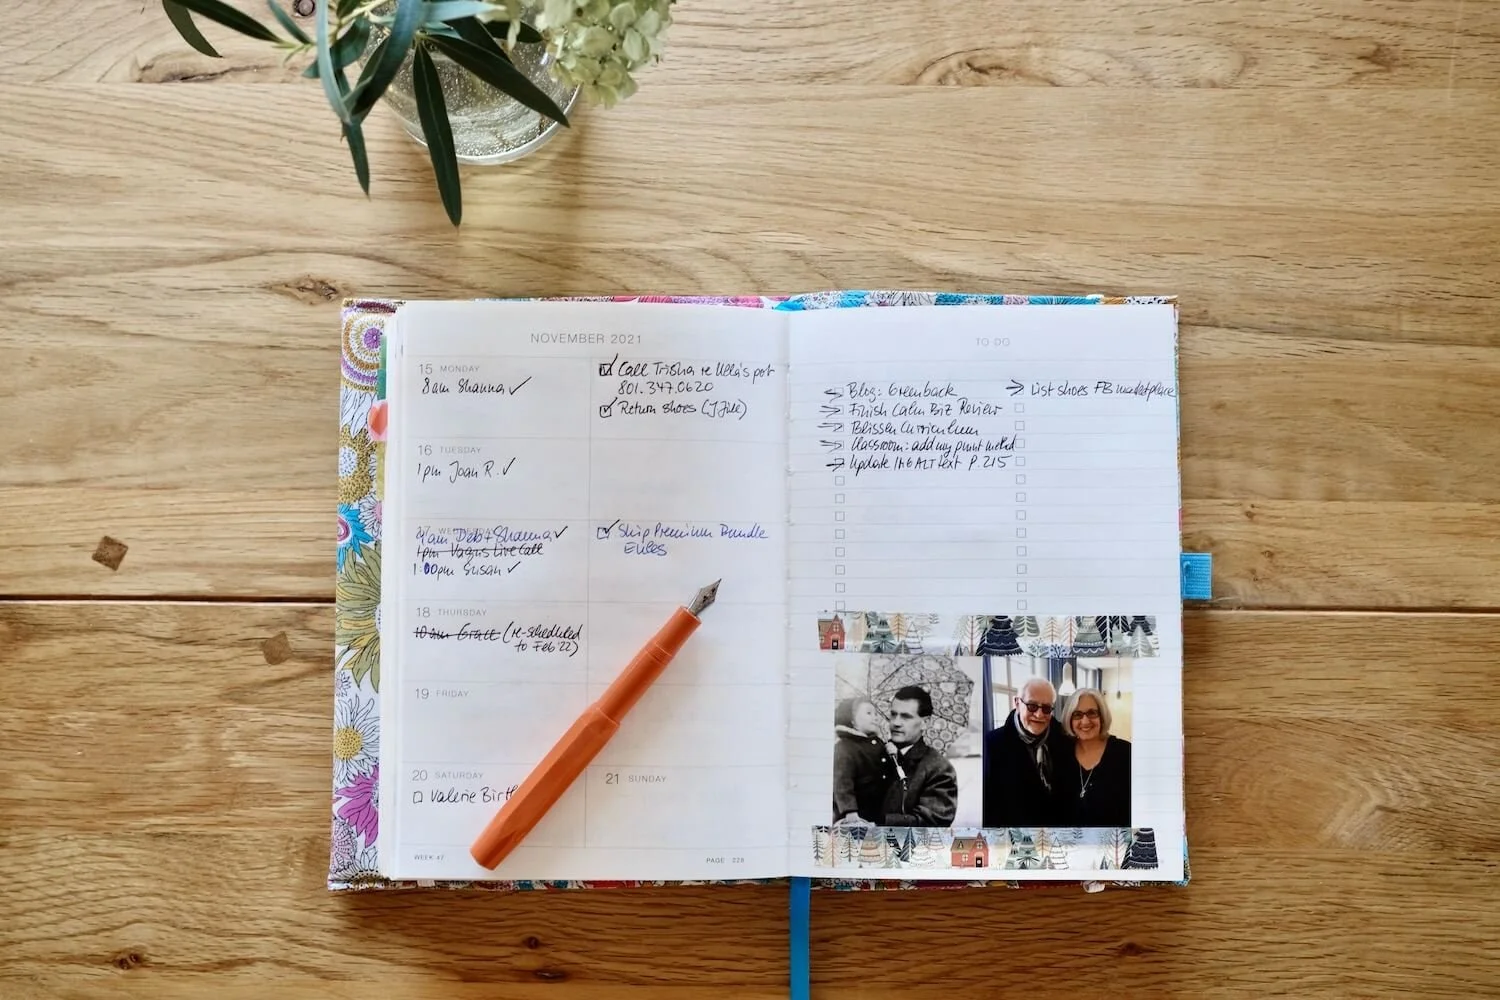 NOVEMBER 2021
15 MONDAY
8am Shanna ✓
☑ Call Trisha re Ulla's pot
801.347.0620
☑ Return shoes (J Jill)
16 TUESDAY
1pm Joan R. ✓
17 WEDNESDAY
9am Deb + Shanna ✓
1pm Vagus Live Call
1:00pm Susan ✓
☑ Ship Premium Bundle
18 THURSDAY
10am Grace (re-scheduled
to Feb '22)
19 FRIDAY
20 SATURDAY
☐ Valerie Birth
21 SUNDAY
WEEK 47
PAGE 228
TO DO
Blog: Greenback
Finish Calm Biz Review
Blissen Curriculum
Classroom: add my pump
Update ALT text P. 215
List shoes FB marketplace